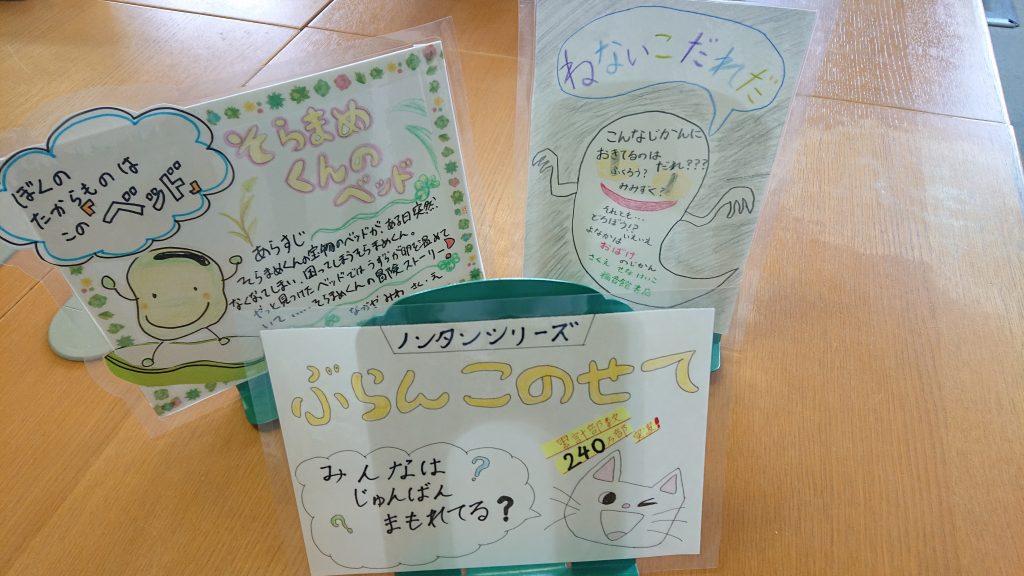 ぼくの
たからものは
この ベッド。
そらまめ
くんの
ベッド
あらすじ
そらまめくんの宝物のベッドがある日突然
なくなてしまい、困ってしまうそらまめくん。
やっと見つけたベッドではうずらが卵を温めて
いて…… そらまめくんの冒険ストーリー
なかや みわ さく・え
ねないこだれだ
こんなじかんに
おきてるのは だれ???
ふくろう?
みみずく?
それとも…
どろぼう!?
よなかは いえいえ
おばけ
のじかん
さくえ せなけいこ
福音館書店
ノンタンシリーズ
ぶらんこのせて
累計部数
240万部 突破!
みんなは
じゅんばん
まもれてる?